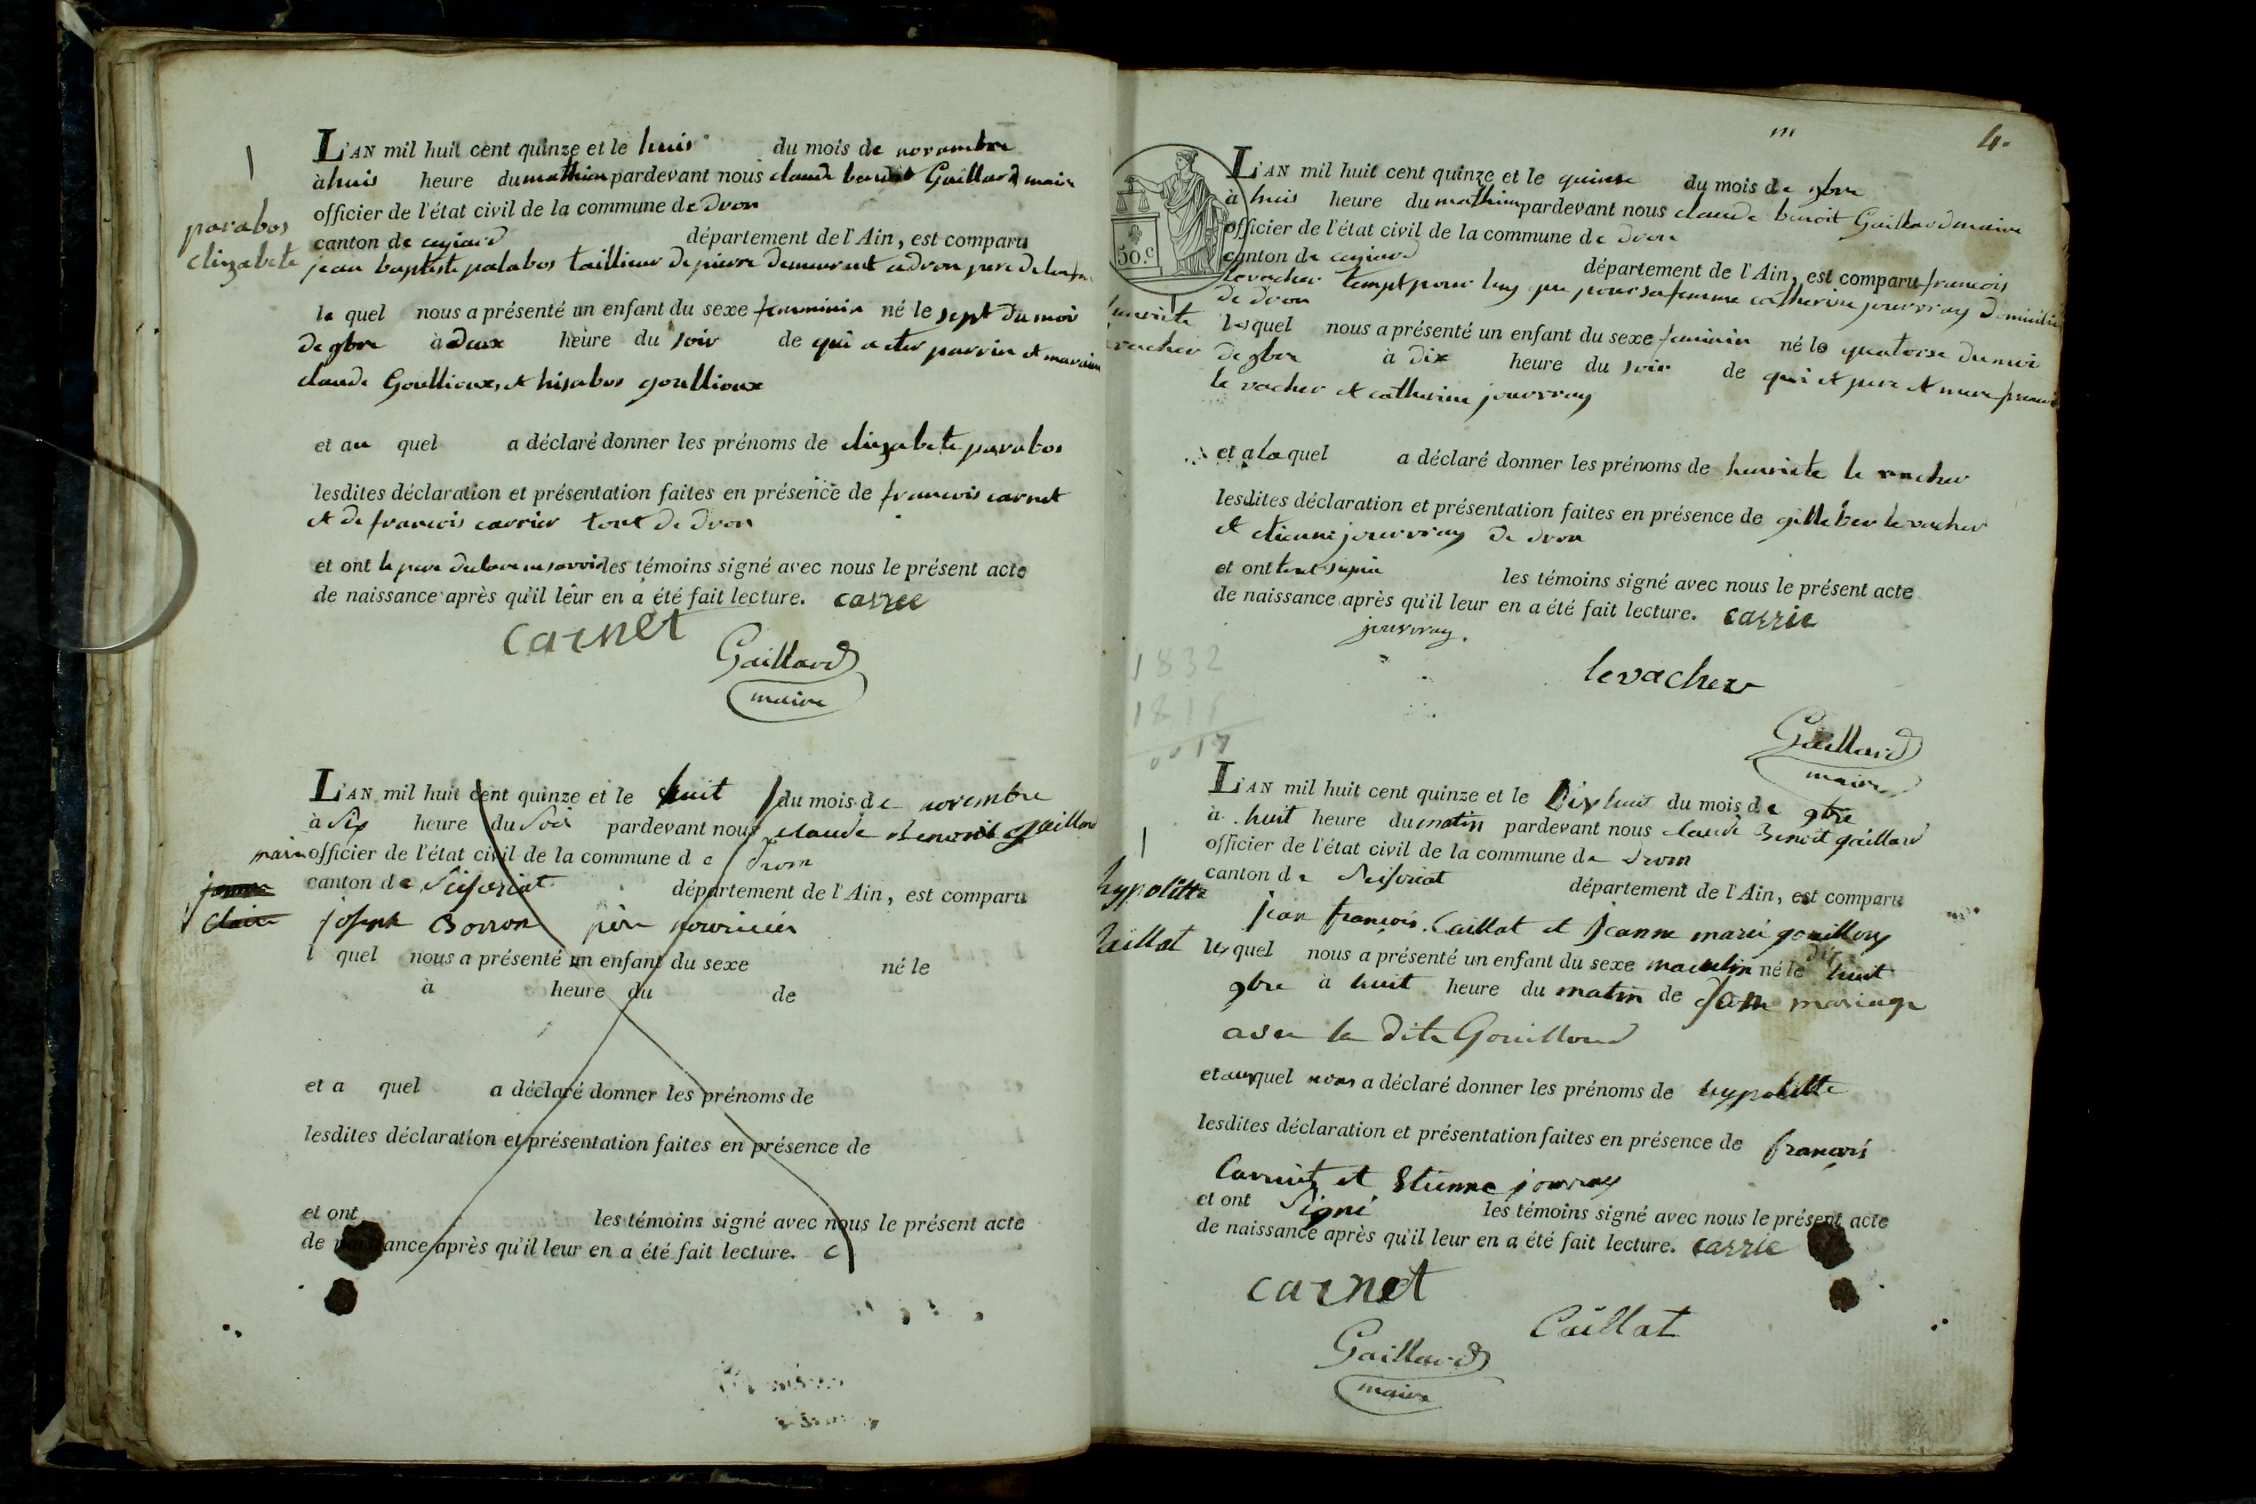 L'AN mil huit cent quinze et le huis du mois de novambre
à huis heure du mathin pardevant nous claude benoit Gaillard maire
officier de l'état civil de la commune de dron
canton de
département de l'Ain, est comparu
parabos
elizabete
jean baptiste palabos taillieur de pierre demeurent adron pere de
le quel nous a présenté un enfant du sexe femminin né le sept du mois
de 9bre à deux heure du soir de qui a ete parrin et maraine
claude Goullioux, et hisabos goullioux
et au quel a déclaré donner les prénoms de elizabete parabos
lesdites déclaration et présentation faites en présence de francois carnet
et de francois carrier tout de dron
et ont le pere les témoins signé avec nous le présent acte
de naissance après qu'il leur en a été fait lecture. carrie
carnet
Gaillard
maire
L'AN mil huit cent quinze et le huit du mois de novembre
à Six heure du Soir pardevant nous claude Benoit gaillard
maire officier de l'état civil de la commune de drom
canton de
département de l'Ain, est comparu
Claire
joseph Borron père nourricier
l quel nous a présenté un enfant du sexe né le
à heure du de
et a quel a déclaré donner les prénoms de
lesdites déclaration et présentation faites en présence de
et ont les témoins signé avec nous le présent acte
de naissance après qu'il leur en a été fait lecture. C
4.
L'AN mil huit cent quinze et le quinse du mois de 9bre
à huis heure du mathin pardevant nous claude benoit Gaillard maire
officier de l'état civil de la commune de dron
50.c
canton de
département de l'Ain, est comparu francois
levacher tempt pour luy que pour sa femme catherine jouvray domicilié
de dron
lesquel nous a présenté un enfant du sexe feminin né le quatorse du moi
de 9bre à dix heure du soir de qui et pere et mere
le vacher et catherine jouvray
et a laquel a déclaré donner les prénoms de henriete le vacher
lesdites déclaration et présentation faites en présence de gilleber levacher
et etienne jouvray de dron
et ont les témoins signé avec nous le présent acte
de naissance après qu'il leur en a été fait lecture. carrie
jouvray.
levacher
Gaillard
maire
1832
1815
0017
L'AN mil huit cent quinze et le Dix huit du mois de 9bre
à huit heure du matin pardevant nous claude Benoit gaillard
officier de l'état civil de la commune de drom
canton de
département de l'Ain, est comparu
hypolitte
Caillat
jean françois Caillat et Jeanne marie gouilloux
les quel nous a présenté un enfant du sexe masculin né le dix huit
9bre à huit heure du matin de Son mariage
avec la dite Gouilloud
et auquel nous a déclaré donner les prénoms de hypolitte
lesdites déclaration et présentation faites en présence de françois
Carnet et Etienne jouvray
et ont Signé les témoins signé avec nous le présent acte
de naissance après qu'il leur en a été fait lecture. carrie
carnet
Caillat
Gaillard
maire